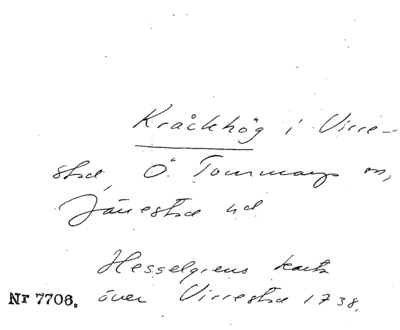 Kråckhög i Virre-
stad, Ö. Tommarps sn,
Järrestad hd
Hesselgrens karta
Nr 7706. över Virrestad 1738.